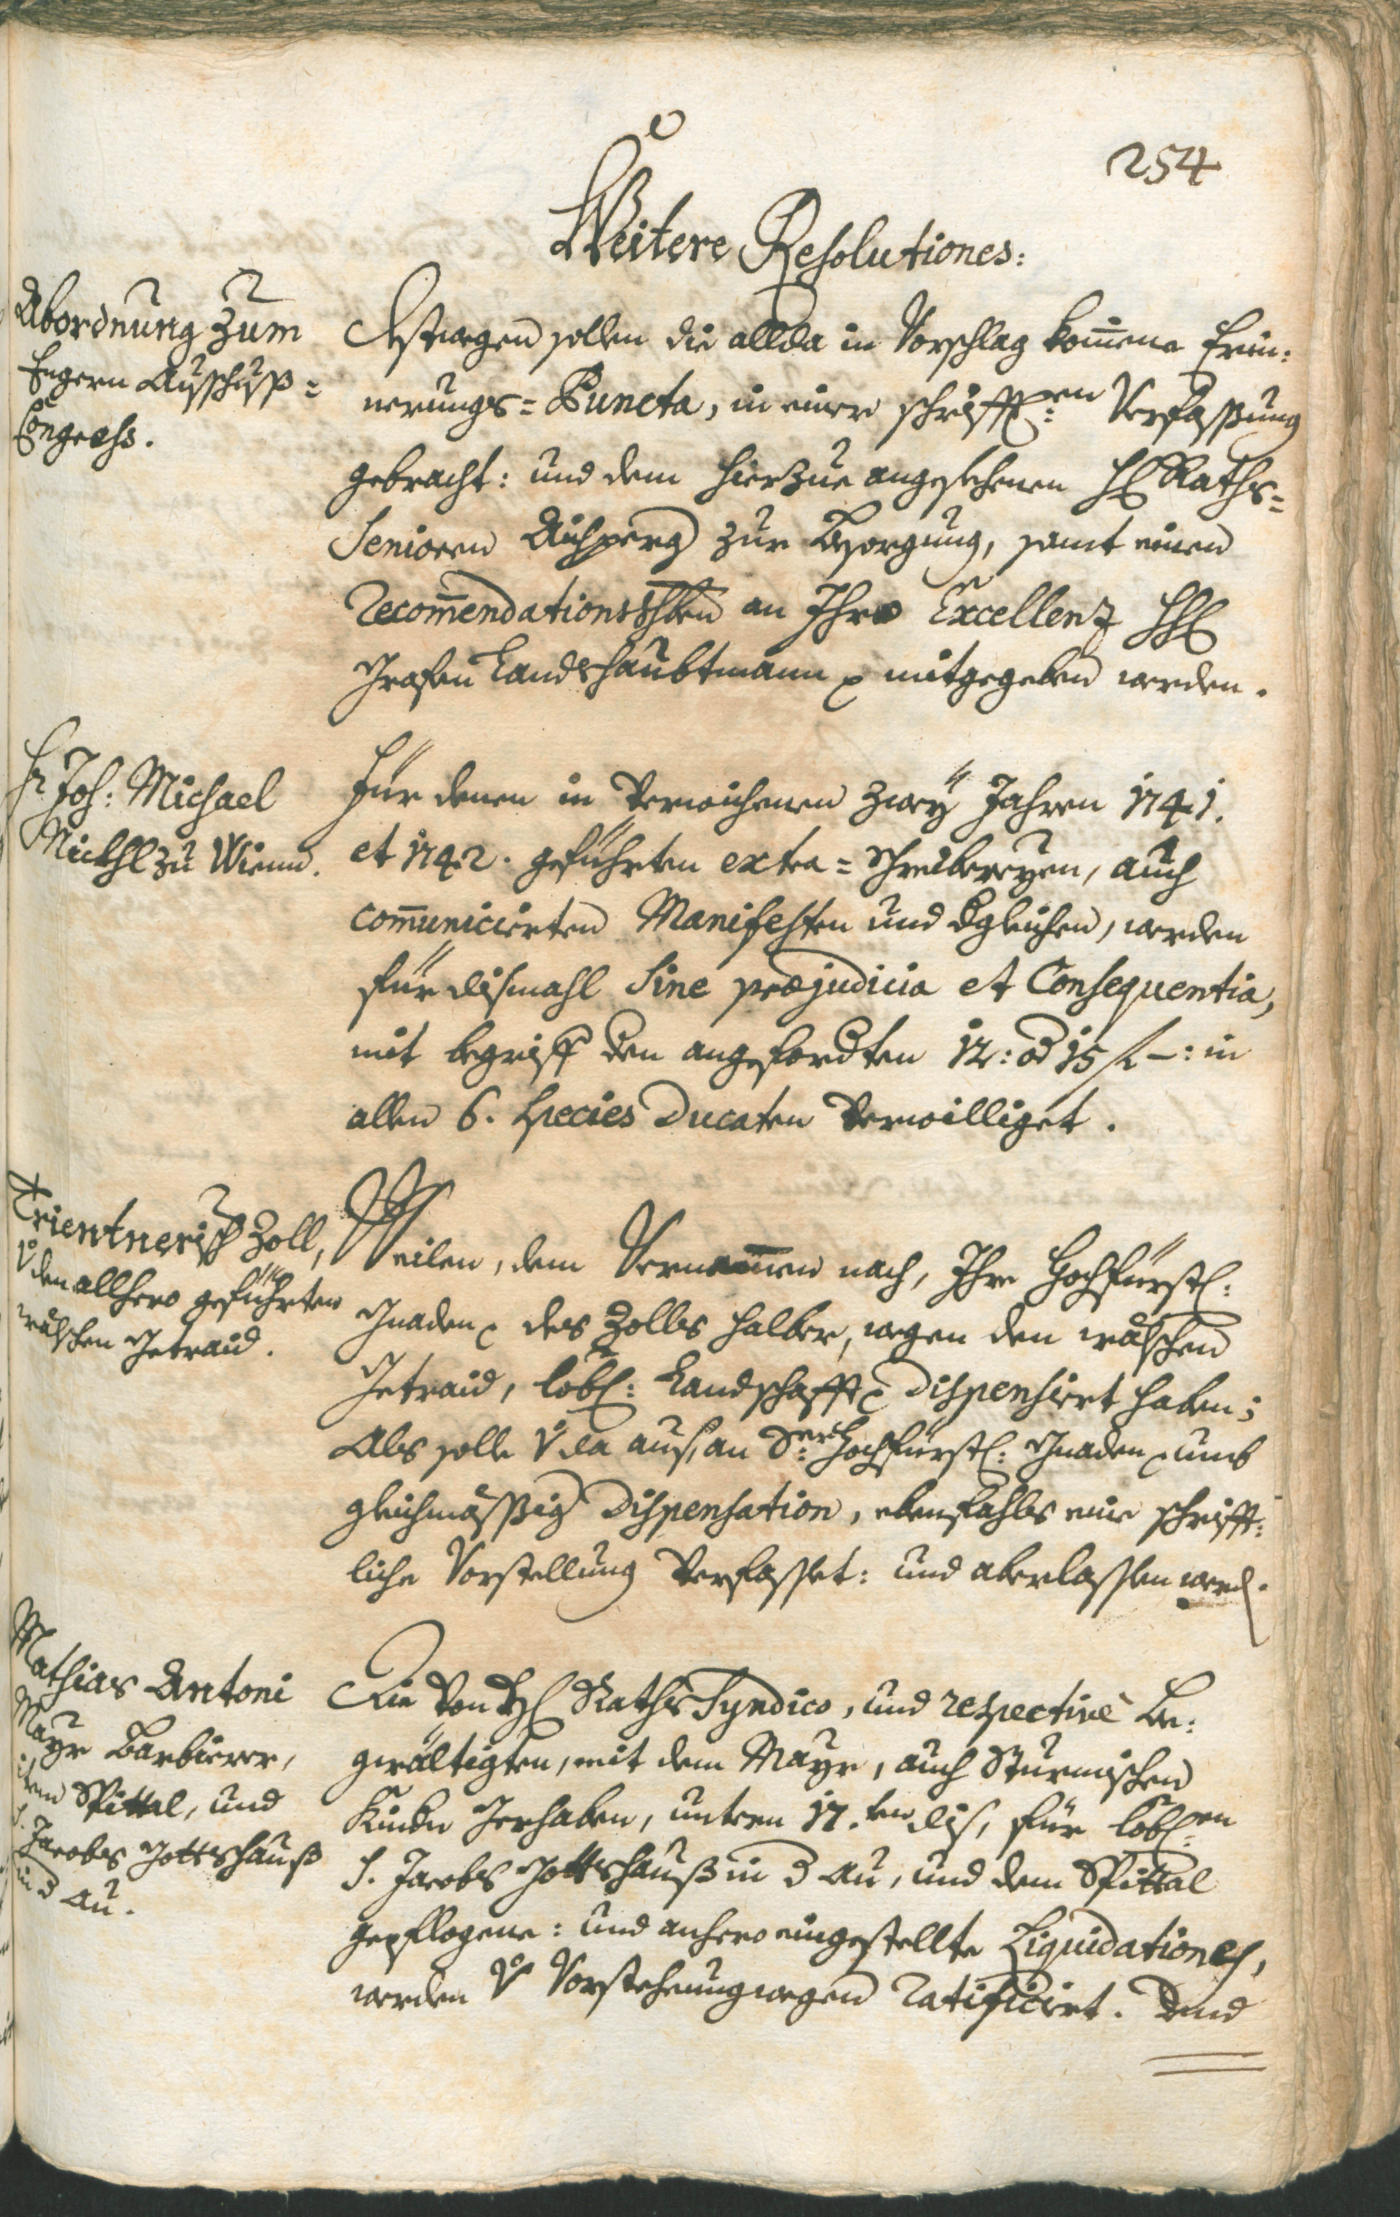 254
Weitere Resolutiones:
Abordnung zum
Engern Ausschuß=
Congress.
Estwegen sollen die allda in Vorschlag kom̅ene Erin:
nerungs=Puncta, in einer schrifftl:en Verfassung
gebracht: und dem hierzue angesehenen H: Raths=
Senioren zur Besorgung, samt einen
Recom̅endationsschben an Ihro Excellenz HH:
Grafen Landshaubtmann p mitgegeben werden.
Hr Joh: Michael
Nickhl zu Wienn.
Für denen in verwichenen zwey Jahren 1741.
et 1742. geführten extra=Schreibereyen, auch
com̅unicierten Manifesten und dgleichen, werden
für dismahl sine præjudicia et Consequentia,
mit begriff den angefordten 12: od 15 f –: in
allen 6. Species Ducaten verwilliget.
Trientnerisch Zoll,
V: den allhero geführten
wälschen Getraid.
Weilen, dem Vernem̅en nach, Ihro Hochfürstl:
Gnaden p des Zolls halber, wegen den wälschen
Getraid, löbl: Landschafft p dispensiert haben;
Als solle V: da aus, an Sr: Hochfürstl: Gnaden p umb
gleichmässig Dispensation, ebenfahls eine schrifft:
liche Vorstellung verfasset: und aberlassen werd.
Mathias Antoni
Mayr Barbierer,
item Spittal, und
S. Jacobs Gottshauß
in d Au.
Die von H: Raths Syndico, und respectivè Be:
gwältigten, mit dem Mayr, auch Sturmischen
Kindn Gerhaben, untern 17.ten dis, für löbl:en
S. Jacobs Gottshauß in d Au, und dem Spittal
gepflogene: und anhero eingestellte Liquidationes,
werden V: Vorstehung wegen ratificirt. Und